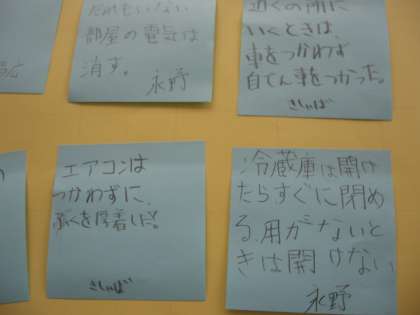 だれもいない
部屋の電気は
消す。
永野
近くの所に
いくときは、
車をつかわず
自てん車をつかった。
きしゃば
エアコンは
つかわずに、
ふくを厚着した。
きしゃば
冷蔵庫は開け
たらすぐに閉め
る。用がないと
きは開けない
永野